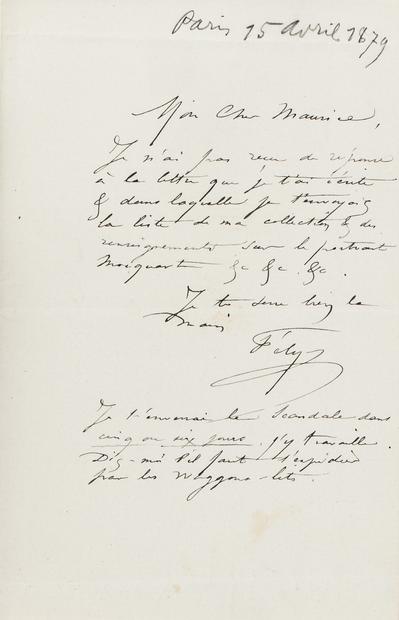 Paris 15 Avril 1879
Mon Cher Maurice,
Je n'ai pas reçu de réponse
à la lettre que je t'ai écrite
& dans laquelle je t'envoyais
la liste de ma collection & des
renseignements sur le portrait
&c &c &c.
Je te serre bien la
main
Fély
Je t'enverrai le Scandale dans
cinq ou six jours. j'y travaille.
Dis-moi s'il faut l'expédier
par les Waggons-lits.